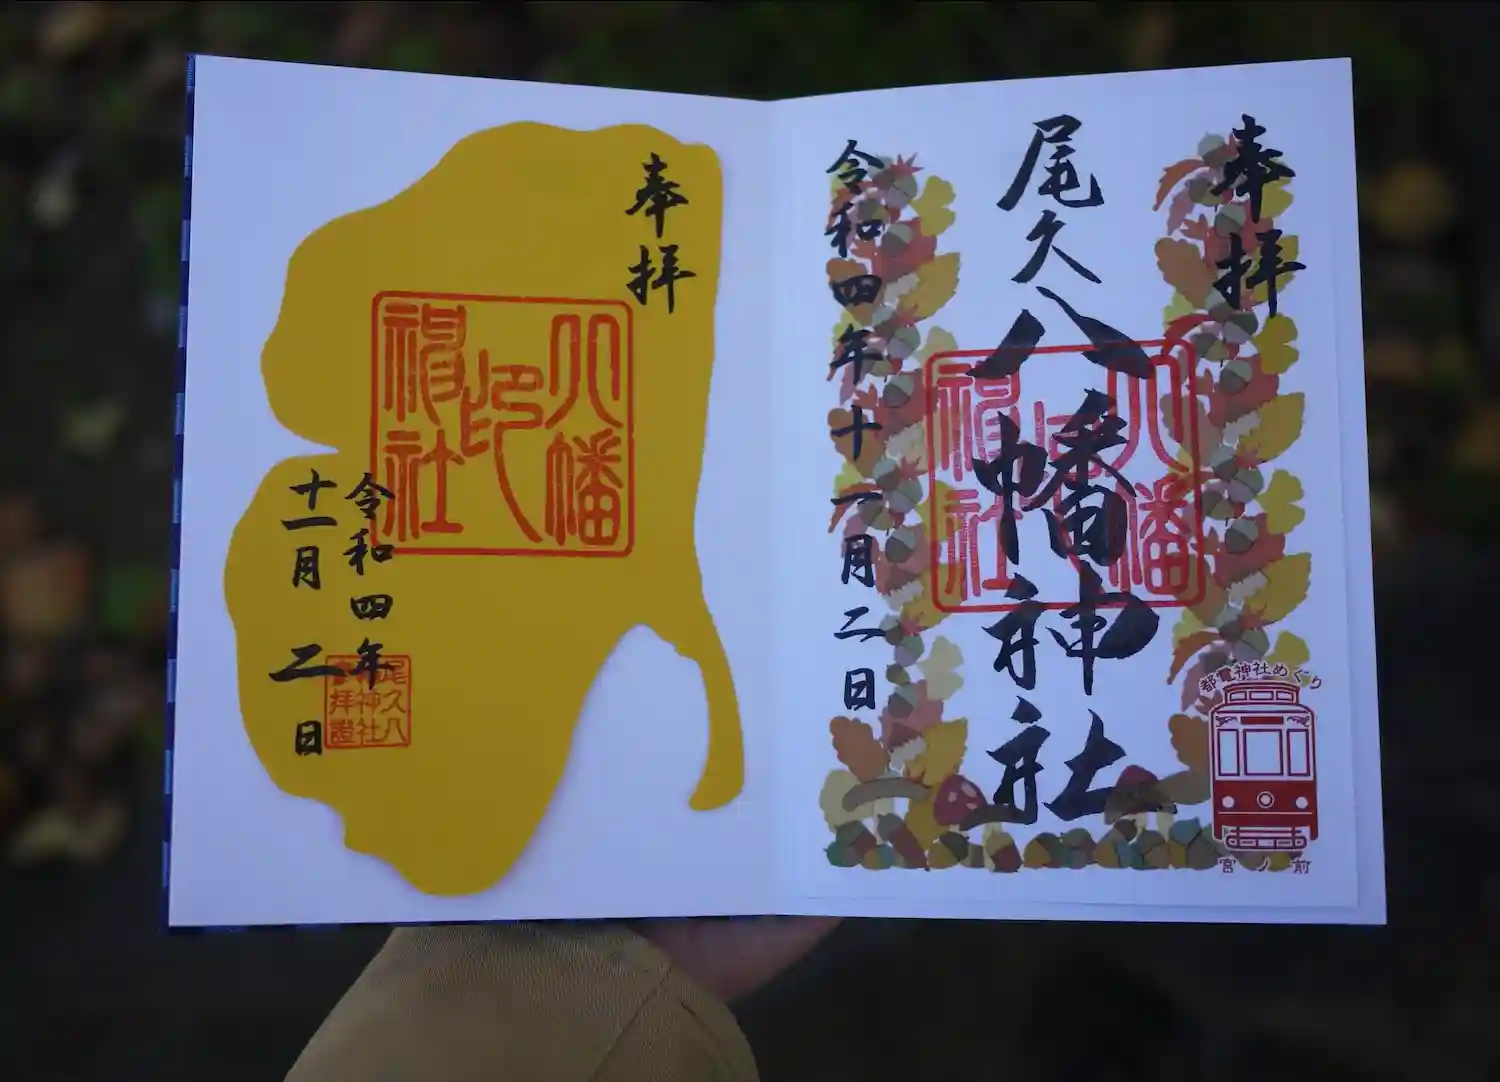 奉拝
尾久八幡神社
令和四年十一月二日
八幡
印
神社
都電神社めぐり
宮ノ前
奉拝
八幡
印
神社
令和四年
十一月二日
尾久八
幡神社
参拝證